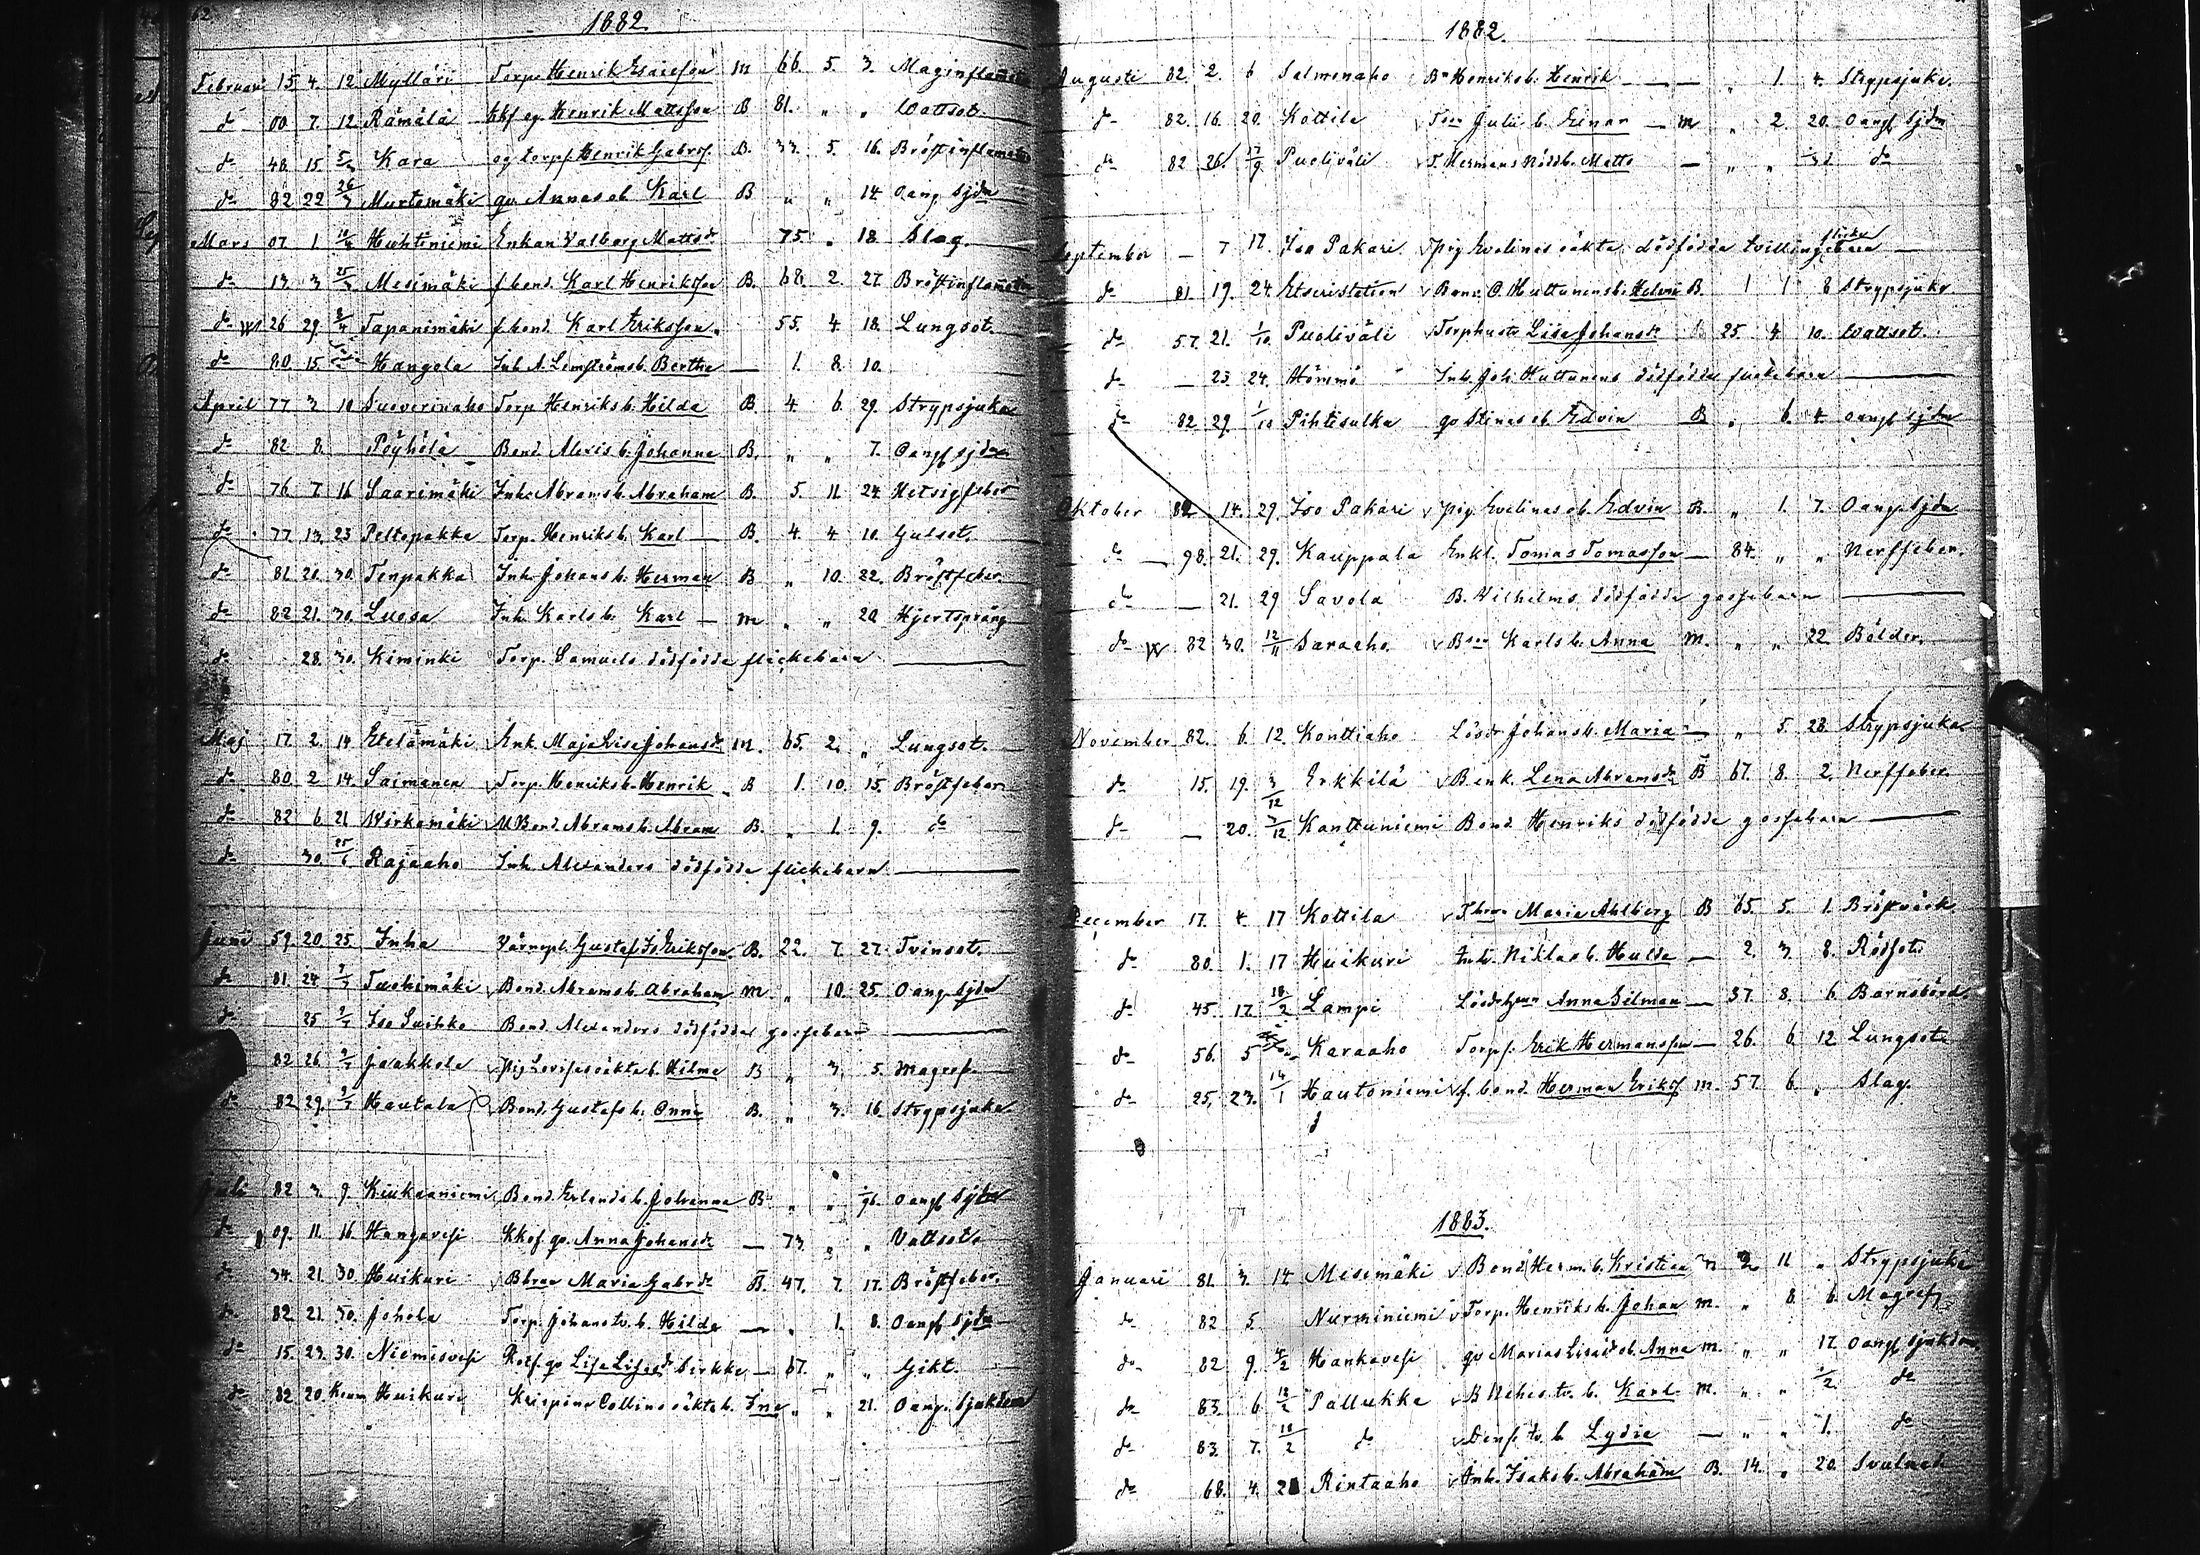 62.
1882.
Februari 15 4. 12 Mylläri Torp. Henrik Esaiesson m 66. 5. 3. Maginflamation
do 00 7. 12 Rämälä Henrik Mattsson B 81. " " Wattsot.
do 48 15 5/3 Kara Henrik Gabrsf. B. 33. 5. 16. Bröstinflamation
do 82 22 26/3 Murtomäki qv. Annas ob. Karl B " " 14 Oang. sjdm
Mars 07 1 10/4 Huhtiniemi Enkan Valborg Mattsdr 75. " 18. Slag.
do 13 3 25/3 Mesimäki f. bond. Karl Henriksson B. 68. 2. 27. Bröstinflamation
do 26 29. 8/4 Tapanimäki f. bond. Karl Eriksson 55. 4 18. Lungsot.
do 80 15 Hangola Inh. A. b. Bertha — 1. 8. 10.
April 77 3 10 Suoverinaho Torp. Henriks b. Hilda B. 4. 6. 29. Strypsjuka
do 82 8. Pöyhölä Bond. Alexis b. Johanna B. " " 7. Oang. sjdm
do 76 7 16 Saarimäki Inh. Abrams b. Abraham B. 5. 11 24. Hetsigfeber
do 77 13. 23 Peltopakka Torp. Henriks b. Karl — B. 4. 4 10. Gulsot.
do 81 20. 30. Tenpakka Inh. Johans b. Herman B " 10. 22. Bröstfeber
do 82 21. 30. Luosa Inh. Karls b. Karl — m " " 20 Hjertsprång
do 28. 30. Kiminki Torp. Samuels dödfödda flickebarn —
Maj 17 2. 14 Etelämäki Enk. Maja Lisa Johansdr m. 65. 2. " Lungsot.
do 80 2 14. Saimanen Torp. Henriks b. Henrik B 1. 10. 15. Bröstfeber
do 82 6 21 Wirkamäki Bond. Abrams b. Abram B. " 1. 9. do
do 30. 25/6 Rajaaho Inh. Alexanders dödfödda flickebarn —
Juni 59 20. 25. Inha Gustaf Is. Eriksson B. 22. 7. 27. Tvinsot.
do 81 24. 2/7 Tuohimäki Bond. Abrams b. Abraham m. " 10. 25. Oang. sjdm
do 25 2/7 Iso Suihko Bond. Alexandres dödfödda gossebarn —
82 26. 2/7 Jaakkola Pig. Lovisas oäkta b. Hilma B " 3. 5. Magref.
do 82 29. 2/7 Hautala Bond. Gustafs b. Onni B. " 3. 16. Strypsjuka
Juli 82 3. 9. Kiukaaniemi Bond. Erlands b. Johanna B. " " Oang. sjdm
do 09. 11. 16. Hangavesi qv. Anna Johansdr — 73. " " Vattsot.
do 34. 21. 30. Huikuri Maria Gabrdr B. 47. 7. 17. Bröstfeber.
do 82 21. 30. Johola Torp. Johans tv. b. Hilda — " 1. 8. Oang. sjdm
do 15. 23. 30. Niemisvesi qv. Lisa Lisasdr — 67. " " Gikt.
do 82 20. Huikuri Krispina Collins oäkta b. Ina " " 21. Oang. sjukdom
1882.
Augusti 82. 2. 6 Salmenaho Bn Henriks b. Henrik — " 1. 4. Strypsjuka.
do 82. 16. 20. Kottila b. Einar — m " 2. 20. Oang. sjdm
do 82 26. 17/9. Puoliväli T. Hermans b. Matts — " " do
September — 7 17. Iso Pakari. Pig. Evelinas oäkta dödfödda tvillingebarn —
do 81 19. 24. b. Helmi B. 1 1 8 Strypsjuka
do 57. 21. 1/10. Puoliväli Torphustr Lisa Johansdr 25. 4. 10. Wattsot.
do — 23 24. Hömmö Inh. Joh. Huttunens dödfödda flickebarn —
do 82 29. 1/10 Pihtisulka qv. Stinas ob. Edvin B " 6. 4. Oang. sjdm
Oktober 82 14. 29. Iso Pakari Pig. Evelinas ob. Edvin B. " 1. 7. Oang. sjdm
do 98. 21. 29. Kauppala Enkl. Tomas Tomasson — 84. " " Nerffeber.
do — 21. 29 Savola B. Vilhelms dödfödda gossebarn —
do W 82 30. 12/11 Saraaho. Karls b. Anna m. " " 22 Bölder.
November 82. 6. 12. Konttiaho Johans b. Maria — " 5. 28. Strypsjuka
do 15. 19. 3/12 Erkkilä B. enk. Lena Abramsdr B 67. 8. 2. Nerffeber.
do — 20. 3/12 Kanttuniemi Bond. Henriks dödfödda gossebarn —
December 17. 4 17 Kottila Maria Ahlberg B 65. 5. 1. Bröstvärk.
do 80. 1. 17 Huikuri Inh. Niklas b. Hulda — 2. 3. 8. Rödsot.
do 45. 17. 18/2 Lampi Anna Silman — 37. 8. 6 Barnsbörd.
do 56. 5 Karaaho Torpf. Erik Hermansson — 26. 6. 12 Lungsot.
do 25. 23. 14/1 Hautoniemi f. bond. Herman Eriksf m. 57 6. " Slag.
1883.
Januari 81. 3. 14 Mesimäki Bond. Herm. b. Kristina 11 " Strypsjuka
do 82 5. Nurminiemi Torp. Henriks b. Johan m. " 8. 6. Magref
do 82 9. 4/2 Hankavesi qv. Marias ob. Anna m. " " 17. Oang. sjukdom
do 83. 6. 18/2 Pallukka tv. b. Karl m. " " 1/2. do
do 83. 7. 18/2 do Dens. tv. b. Lydia — " " 1. do
do 68. 4. 21 Rintaaho Inh. Isaks b. Abraham B. 14. " 20. Svulnad